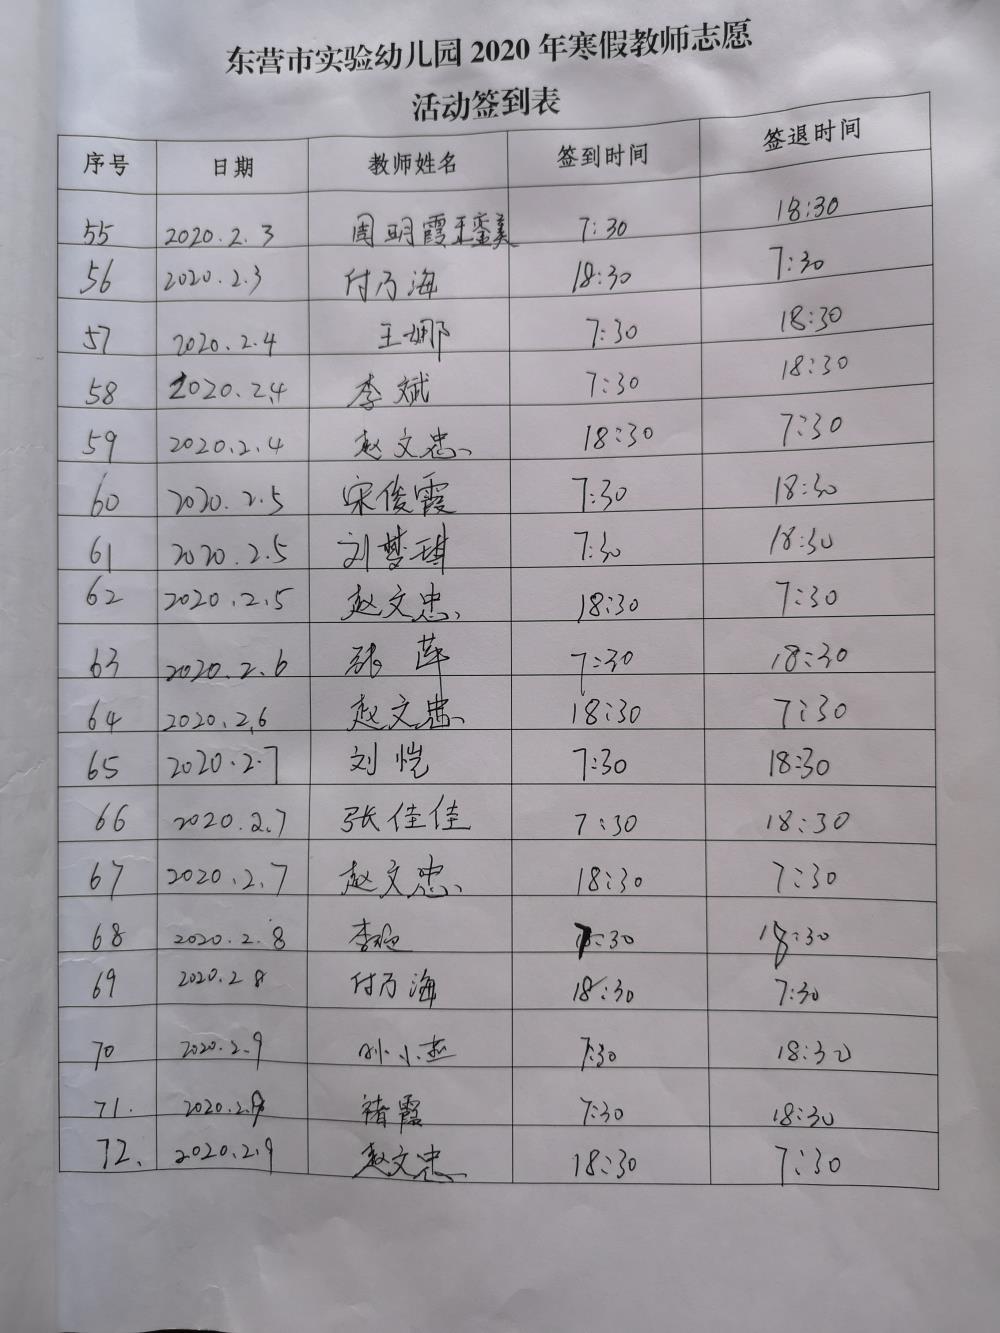 东营市实验幼儿园 2020 年寒假教师志愿
活动签到表
序号 日期 教师姓名 签到时间 签退时间
55 2020.2.3 周明霞 7:30 18:30
56 2020.2.3 付乃海 18:30 7:30
57 2020.2.4 王娜 7:30 18:30
58 2020.2.4 李斌 7:30 18:30
59 2020.2.4 赵文忠 18:30 7:30
60 2020.2.5 宋俊霞 7:30 18:30
61 2020.2.5 刘梦琪 7:30 18:30
62 2020.2.5 赵文忠 18:30 7:30
63 2020.2.6 张萍 7:30 18:30
64 2020.2.6 赵文忠 18:30 7:30
65 2020.2.7 刘恺 7:30 18:30
66 2020.2.7 张佳佳 7:30 18:30
67 2020.2.7 赵文忠 18:30 7:30
68 2020.2.8 7:30 18:30
69 2020.2.8 付乃海 18:30 7:30
70 2020.2.9 孙小杰 7:30 18:30
71. 2020.2.9 褚霞 7:30 18:30
72. 2020.2.9 赵文忠 18:30 7:30